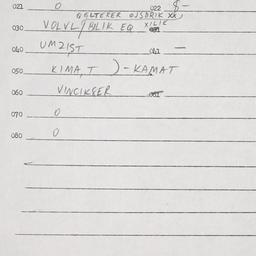 021 0 022 $-
QELTERER OJSDRIK XX
030 VOLVL/BILIK EQ XILIE
040 UMZIST 041 —
050 KIMA, T )-KAMAT
060 VINCIKSER
070 0
080 0